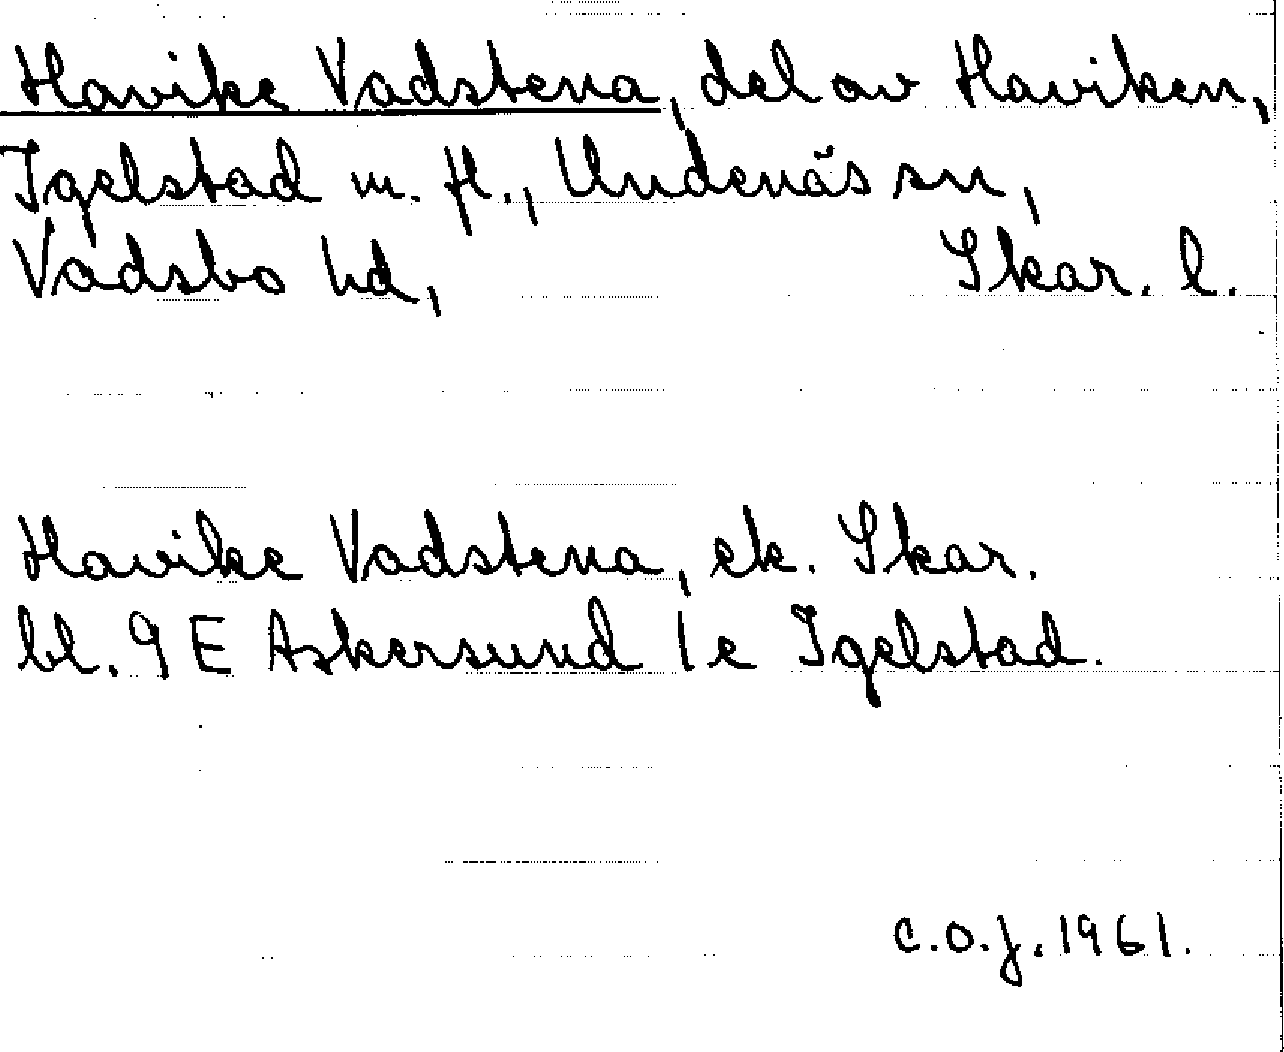 Havike Vadstena, del av Haviken,
Igelstad m. fl., Undenäs sn,
Vadsbo hd, Skar. l.
Havike Vadstena, ek. Skar.
bl. 9 E Askersund 1 e Igelstad.
C.O.J. 1961.